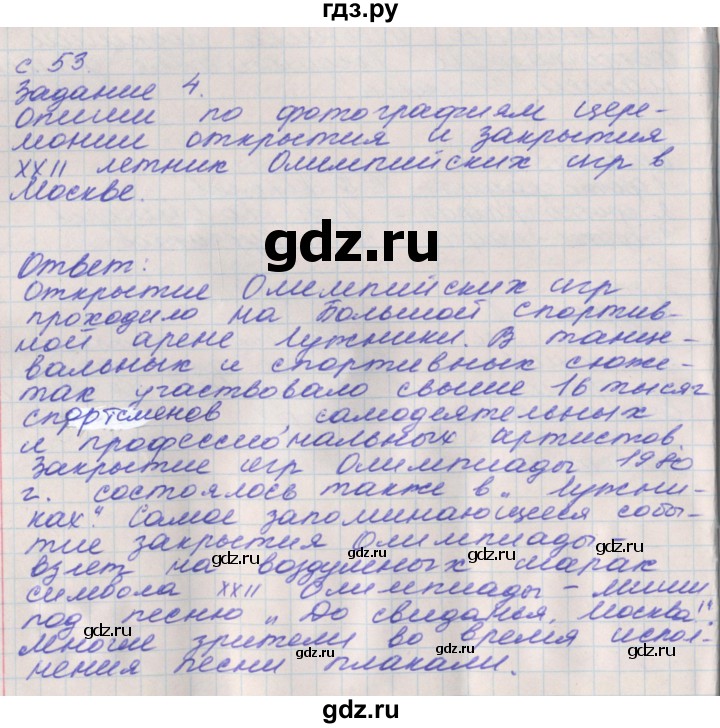 гдз.ру
с. 53.
Задание 4.
Опиши по фотографиям цере-
монии открытия и закрытия
XXII летник Олимпийских игр в
Москве.
gdz.ru
Ответ:
Открытие Олимпийских игр
проходило на Большой спортив-
ной арене Лужники. В танце-
вальных и спортивных сюже-
так участвовало свыше 16 тысяч
спортсменов, самодеятельных
и профессиональных артистов.
Закрытие игр Олимпиады 1980
г. состоялось также в „Лужни-
ках". Самое запоминающееся собы-
тие закрытия Олимпиады -
взлет на воздушных шарах
символа XXII Олимпиады - миши
под песню „До свиданья, Москва!"
многие зрители во время испол-
нения песни плакали.
gdz.ru
gdz.ru
gdz.ru
gdz.ru
gdz.ru
gdz.ru
gdz.ru
gdz.ru
gdz.ru
gdz.ru
gdz.ru
gdz.ru
gdz.ru